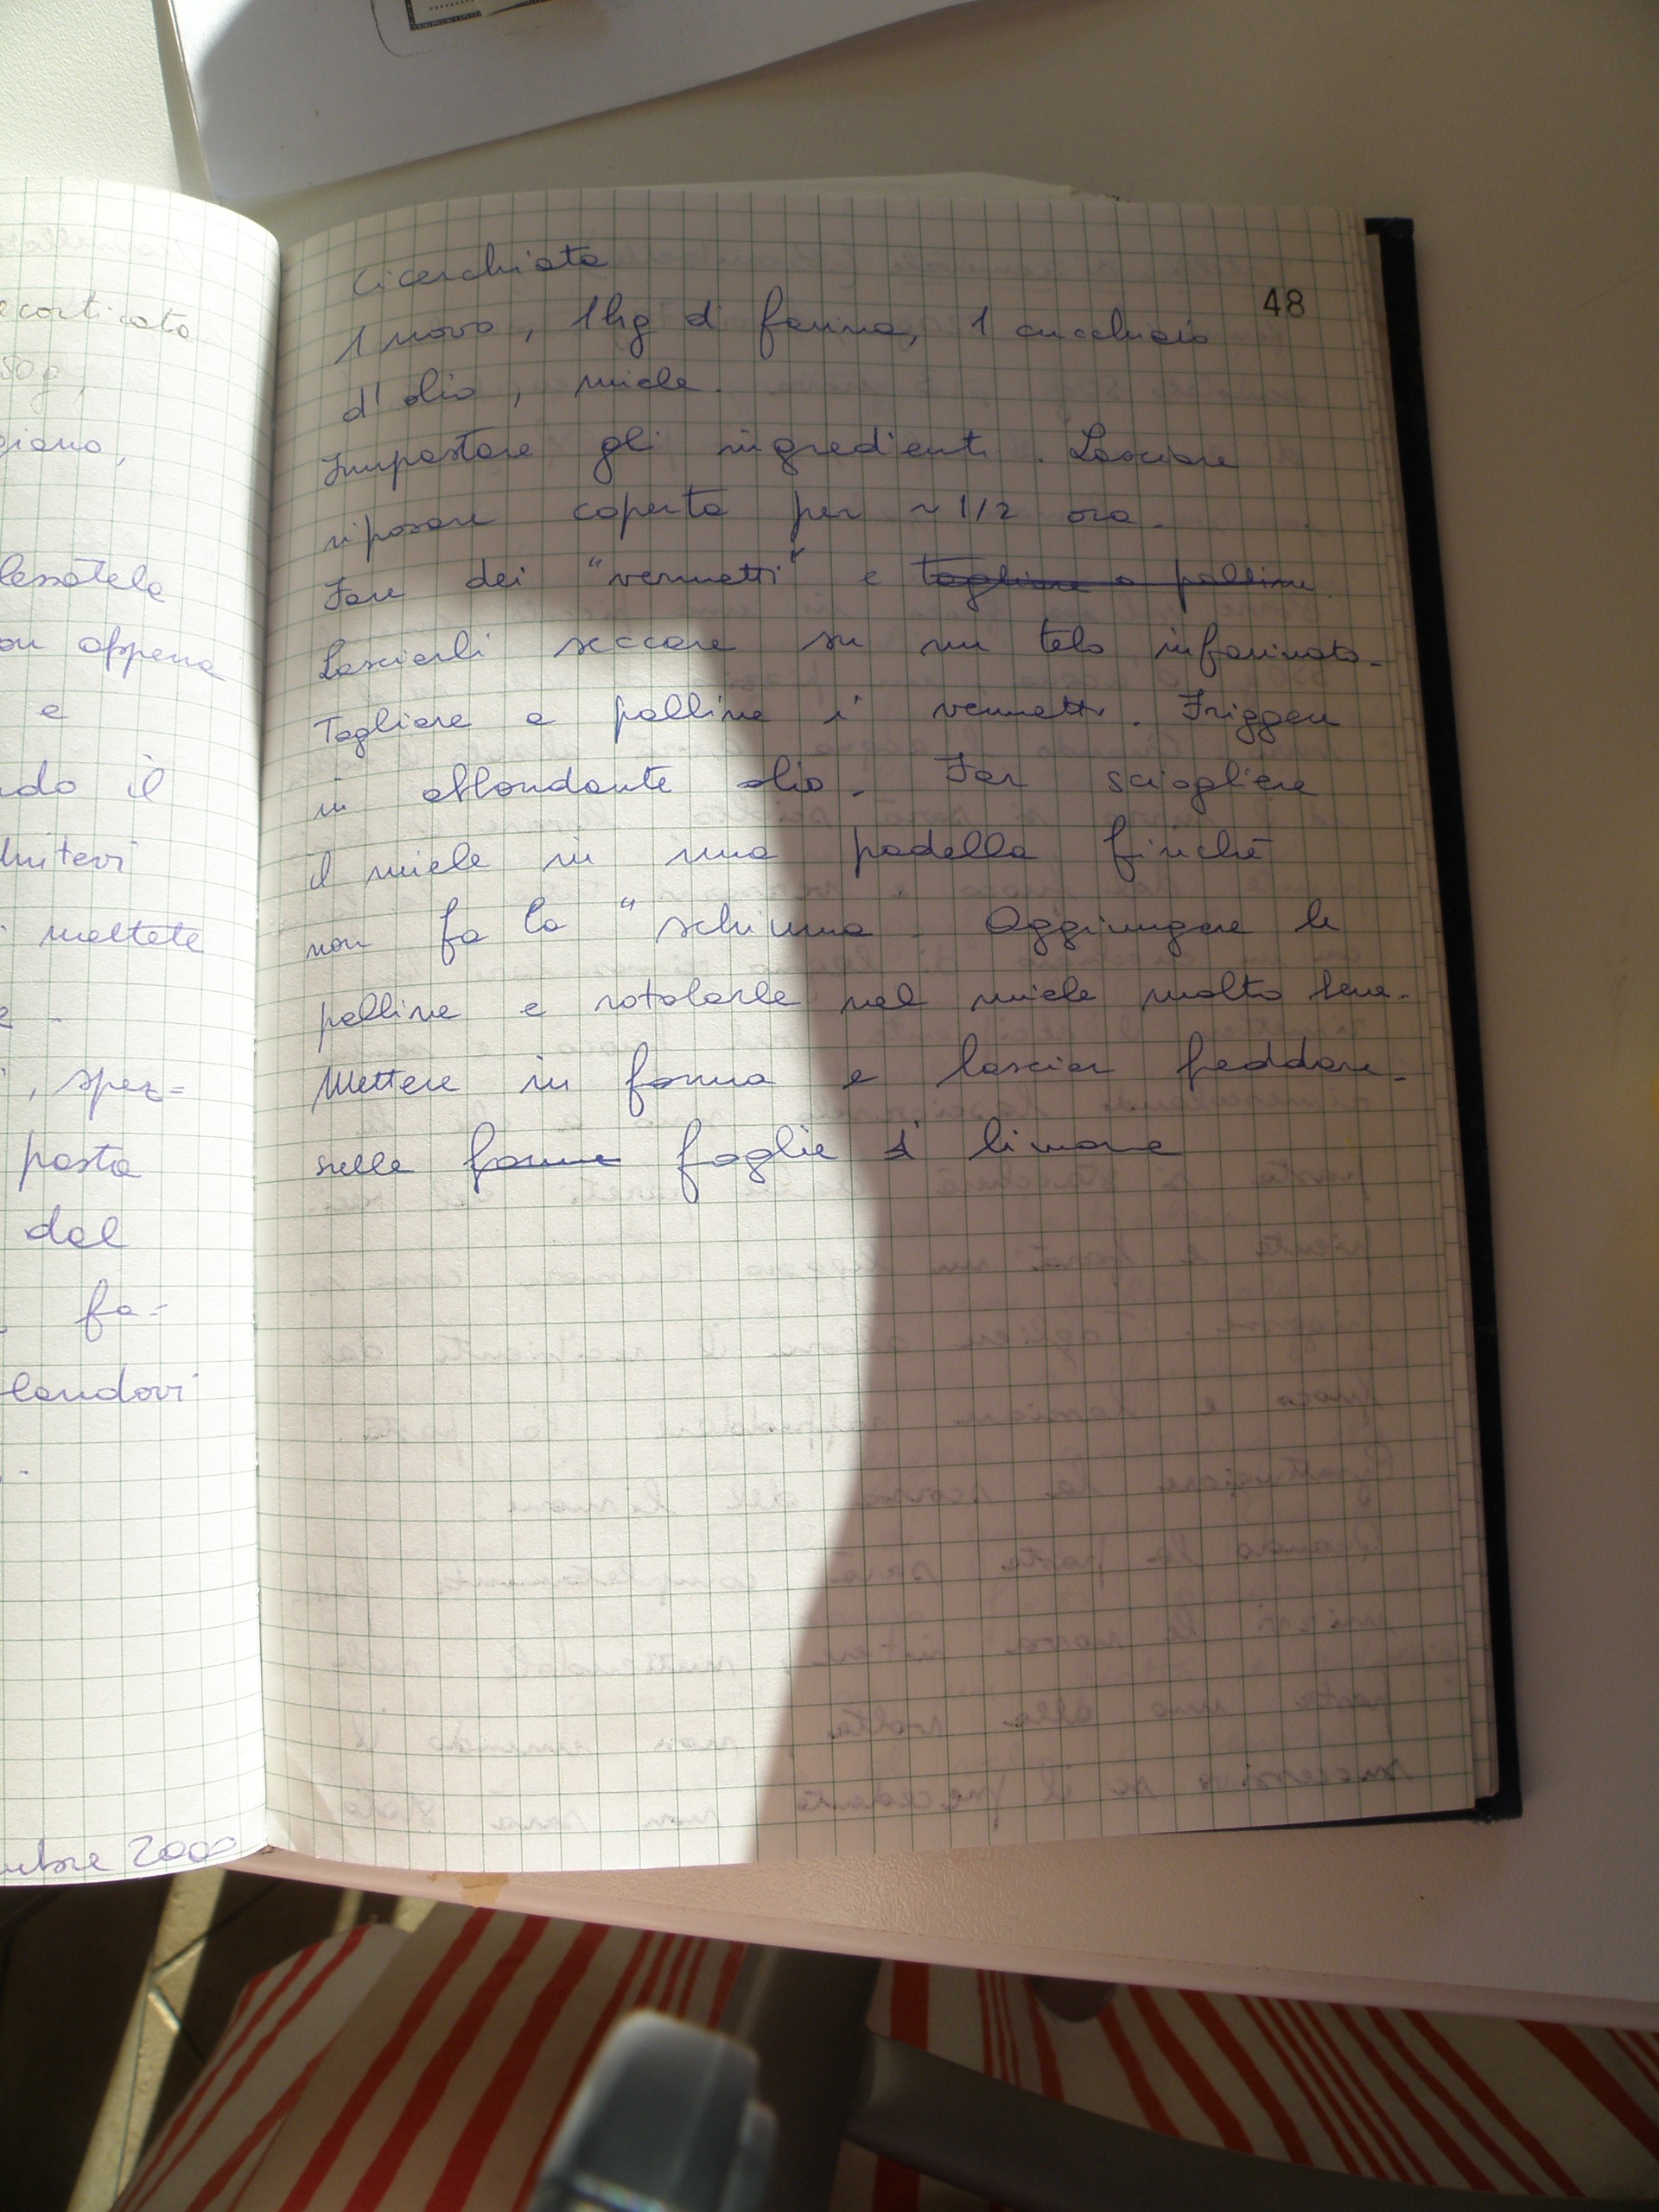 ecorticato
50g,
giano,
lessatela
on appena
e
ndo il
Unitevi
mettete
, spez=
pasta
dal
fa=
landovi
mbre 2000
48
Cicerchiata
1 uovo, 1 kg di farina, 1 cucchiaio
d'olio, miele.
Impastare gli ingredienti. Lasciare
riposare coperta per ~ 1/2 ora.
Fare dei "vermetti" e tagliare a palline.
Lasciarli seccare su un telo infarinato.
Tagliare a palline i vermetti. Friggere
in abbondante olio. Far sciogliere
il miele in una padella finché
non fa la "schiuma. Aggiungere le
palline e rotolarle nel miele molto bene.
Mettere in forma e lasciar feddare.
sulle forme foglie di limone